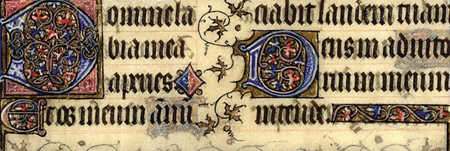 Domine la
bia mea
aperies
Et os meum
ciabit laudem tuam
Deus in adiuto
rium meum
intende